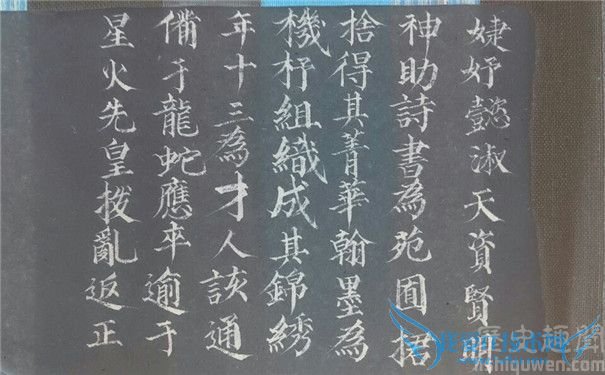 婕妤懿淑天資賢明
神助詩書為苑囿
捨得其菁華翰墨為
機杼組織成其錦綉
年十三為才人該通
俻于龍蛇應卒逾于
星火先皇撥亂返正
歷史趣聞
lishiquwen.com